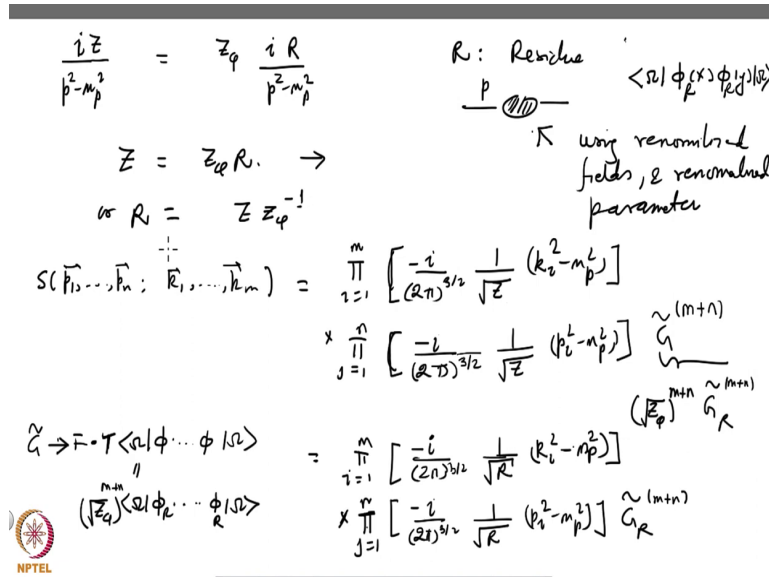 iZ/(p²-m_p²) = Z_φ iR/(p²-m_p²)
R : Residue
<Ω| φ_R(x) φ_R(y) |Ω>
p
Z = Z_φ R. →
↖ using renormalised
fields, & renormalised
parameter
or R = Z Z_φ^{-1}
S(p⃗_1,...,p⃗_n ; k⃗_1,...,k⃗_m) = ∏_{i=1}^{m} [ -i/(2π)^{3/2} 1/√Z (k_i²-m_p²) ]
× ∏_{j=1}^{n} [ -i/(2π)^{3/2} 1/√Z (p_i²-m_p²) ] G̃^{(m+n)}
(√Z_φ)^{m+n} G̃_R^{(m+n)}
G̃ → F.T <Ω| φ ··· φ |Ω>
= ∏_{i=1}^{m} [ -i/(2π)^{3/2} 1/√R (k_i²-m_p²) ]
"
(√Z_φ)^{m+n} <Ω| φ_R ··· φ_R |Ω>
× ∏_{j=1}^{n} [ -i/(2π)^{3/2} 1/√R (p_i²-m_p²) ] G̃_R^{(m+n)}
NPTEL